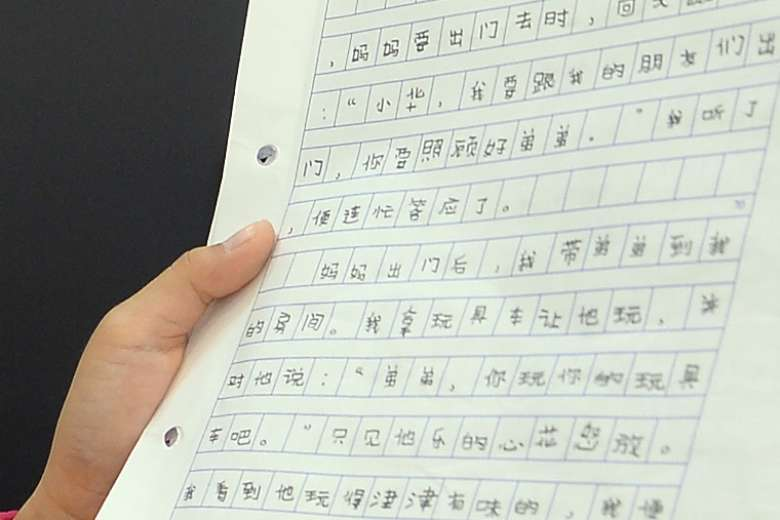 ，妈妈要出门去时，回
：“小华，我要跟我的朋友们出
门，你要照顾好弟弟。”我听了
，便连忙答应了。
妈妈出门后，我带弟弟到我
的房间。我拿玩具车让他玩，
对他说：“弟弟，你玩你的玩具
车吧。”只见他乐的心花怒放。
我看到他玩得津津有味的，我便